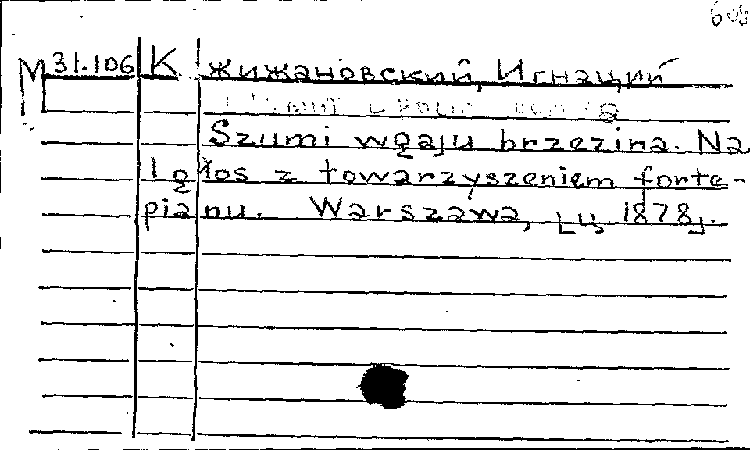 608
М 31.106 К жижановский, Игнаций
Szumi wgaju brzezina. Na
1 głos z towarzyszeniem forte-
pianu. Warszawa, [ц 1878].